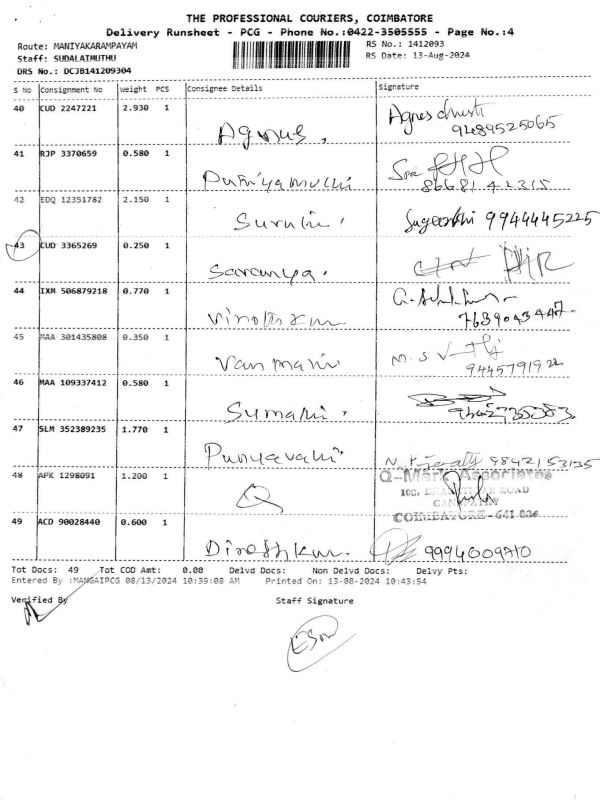 THE PROFESSIONAL COURIERS, COIMBATORE
Delivery Runsheet - PCG - Phone No.:0422-3505555 - Page No.:4
Route: MANIYAKARAMPAYAM
RS No.: 1412093
Staff: SUDALAIMUTHU
RS Date: 13-Aug-2024
DRS No.: DCJB141209304
S No Consignment No Weight PCS Consignee Details Signature
40 CUD 2247221 2.930 1 Agnes
9489525065
41 RJP 3370659 0.580 1
8668142315
42 EDQ 12351782 2.150 1 9944445225
43 CUD 3365269 0.250 1 Saranya.
44 IXM 506879218 0.770 1
7639043447
45 MAA 301435808 0.350 1 Vanmani
9445791922
46 MAA 109337412 0.580 1 Sumathi.
47 SLM 352389235 1.770 1 9842153135
48 APK 1298091 1.200 1 Q
Q-Mark Associates
ROAD
COIMBATORE - 641 006
49 ACD 90028440 0.600 1 Dineshkumar. 9994009710
Tot Docs: 49 Tot COD Amt: 0.00 Delvd Docs: Non Delvd Docs: Delvy Pts:
Entered By :MANGAIPCG 08/13/2024 10:39:08 AM Printed On: 13-08-2024 10:43:54
Verified By Staff Signature